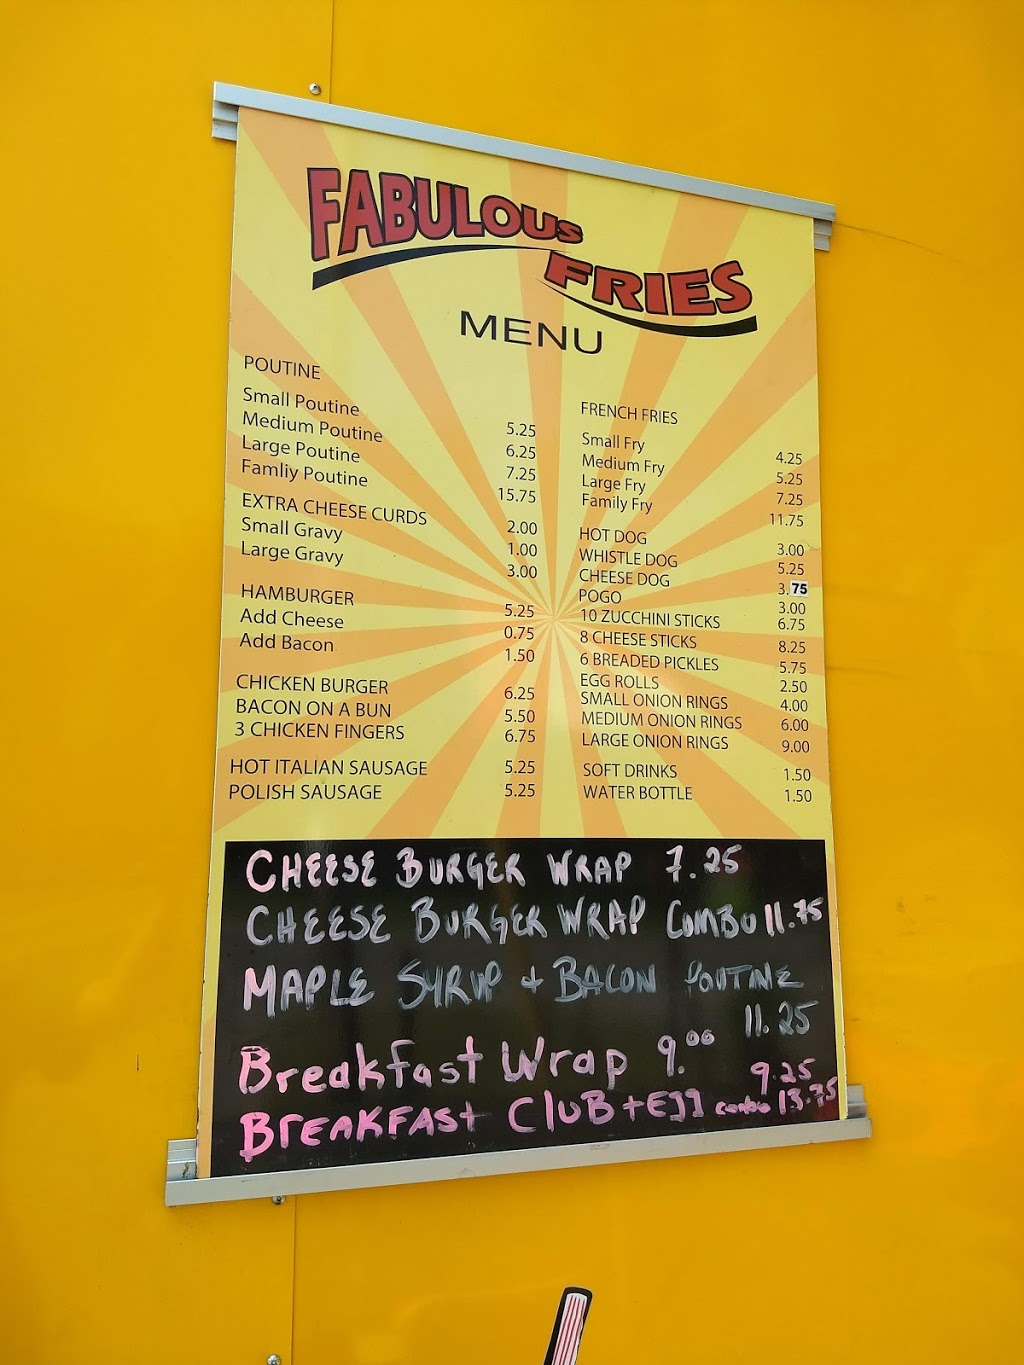 FABULOUS
FRIES
MENU
POUTINE
Small Poutine 5.25
Medium Poutine 6.25
Large Poutine 7.25
Famliy Poutine 15.75
EXTRA CHEESE CURDS 2.00
Small Gravy 1.00
Large Gravy 3.00
HAMBURGER 5.25
Add Cheese 0.75
Add Bacon 1.50
CHICKEN BURGER 6.25
BACON ON A BUN 5.50
3 CHICKEN FINGERS 6.75
HOT ITALIAN SAUSAGE 5.25
POLISH SAUSAGE 5.25
FRENCH FRIES
Small Fry 4.25
Medium Fry 5.25
Large Fry 7.25
Family Fry 11.75
HOT DOG 3.00
WHISTLE DOG 5.25
CHEESE DOG 3.75
POGO 3.00
10 ZUCCHINI STICKS 6.75
8 CHEESE STICKS 8.25
6 BREADED PICKLES 5.75
EGG ROLLS 2.50
SMALL ONION RINGS 4.00
MEDIUM ONION RINGS 6.00
LARGE ONION RINGS 9.00
SOFT DRINKS 1.50
WATER BOTTLE 1.50
CHEESE BURGER WRAP 7.25
CHEESE BURGER WRAP COMBO 11.75
MAPLE SYRUP + BACON POUTINE
11.25
Breakfast Wrap 9.00
9.25
BREAKFAST CLUB + Egg combo 13.75